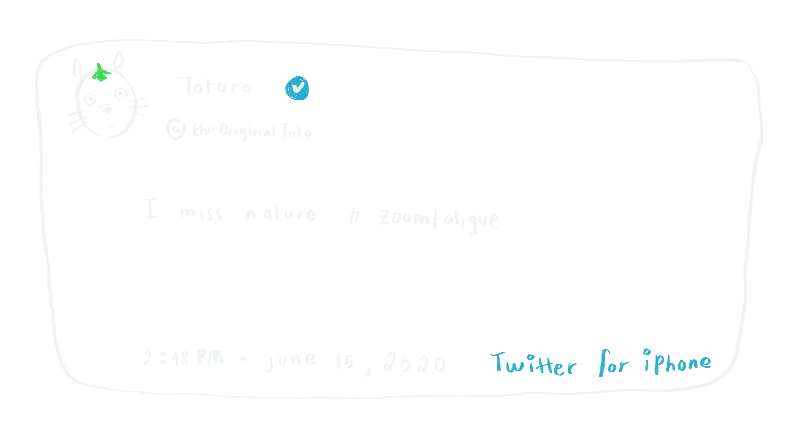 Totoro
@the Original Toto
I miss nature # zoomfatigue
2:48 PM • june 15, 2020 Twitter for iphone